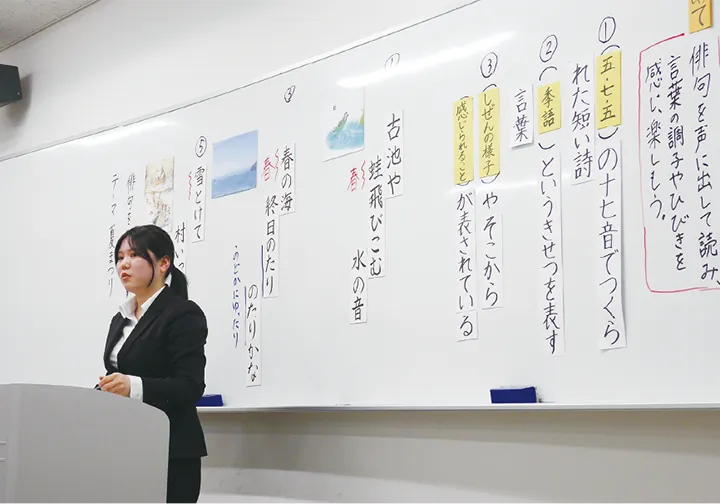 いて
俳句を声に出して読み、
言葉の調子やひびきを
感じ、楽しもう。
①(五・七・五)の十七音でつくら
れた短い詩
②(季語)というきせつを表す
言葉
③(しぜんの様子)やそこから
(感じられること)が表されている
①
古池や
蛙飛びこむ
春
水の音
春の海
春
終日のたり
のたりかな
・のどかにゆったり
⑤雪とけて
村い
俳句を
テーマ 夏まつり